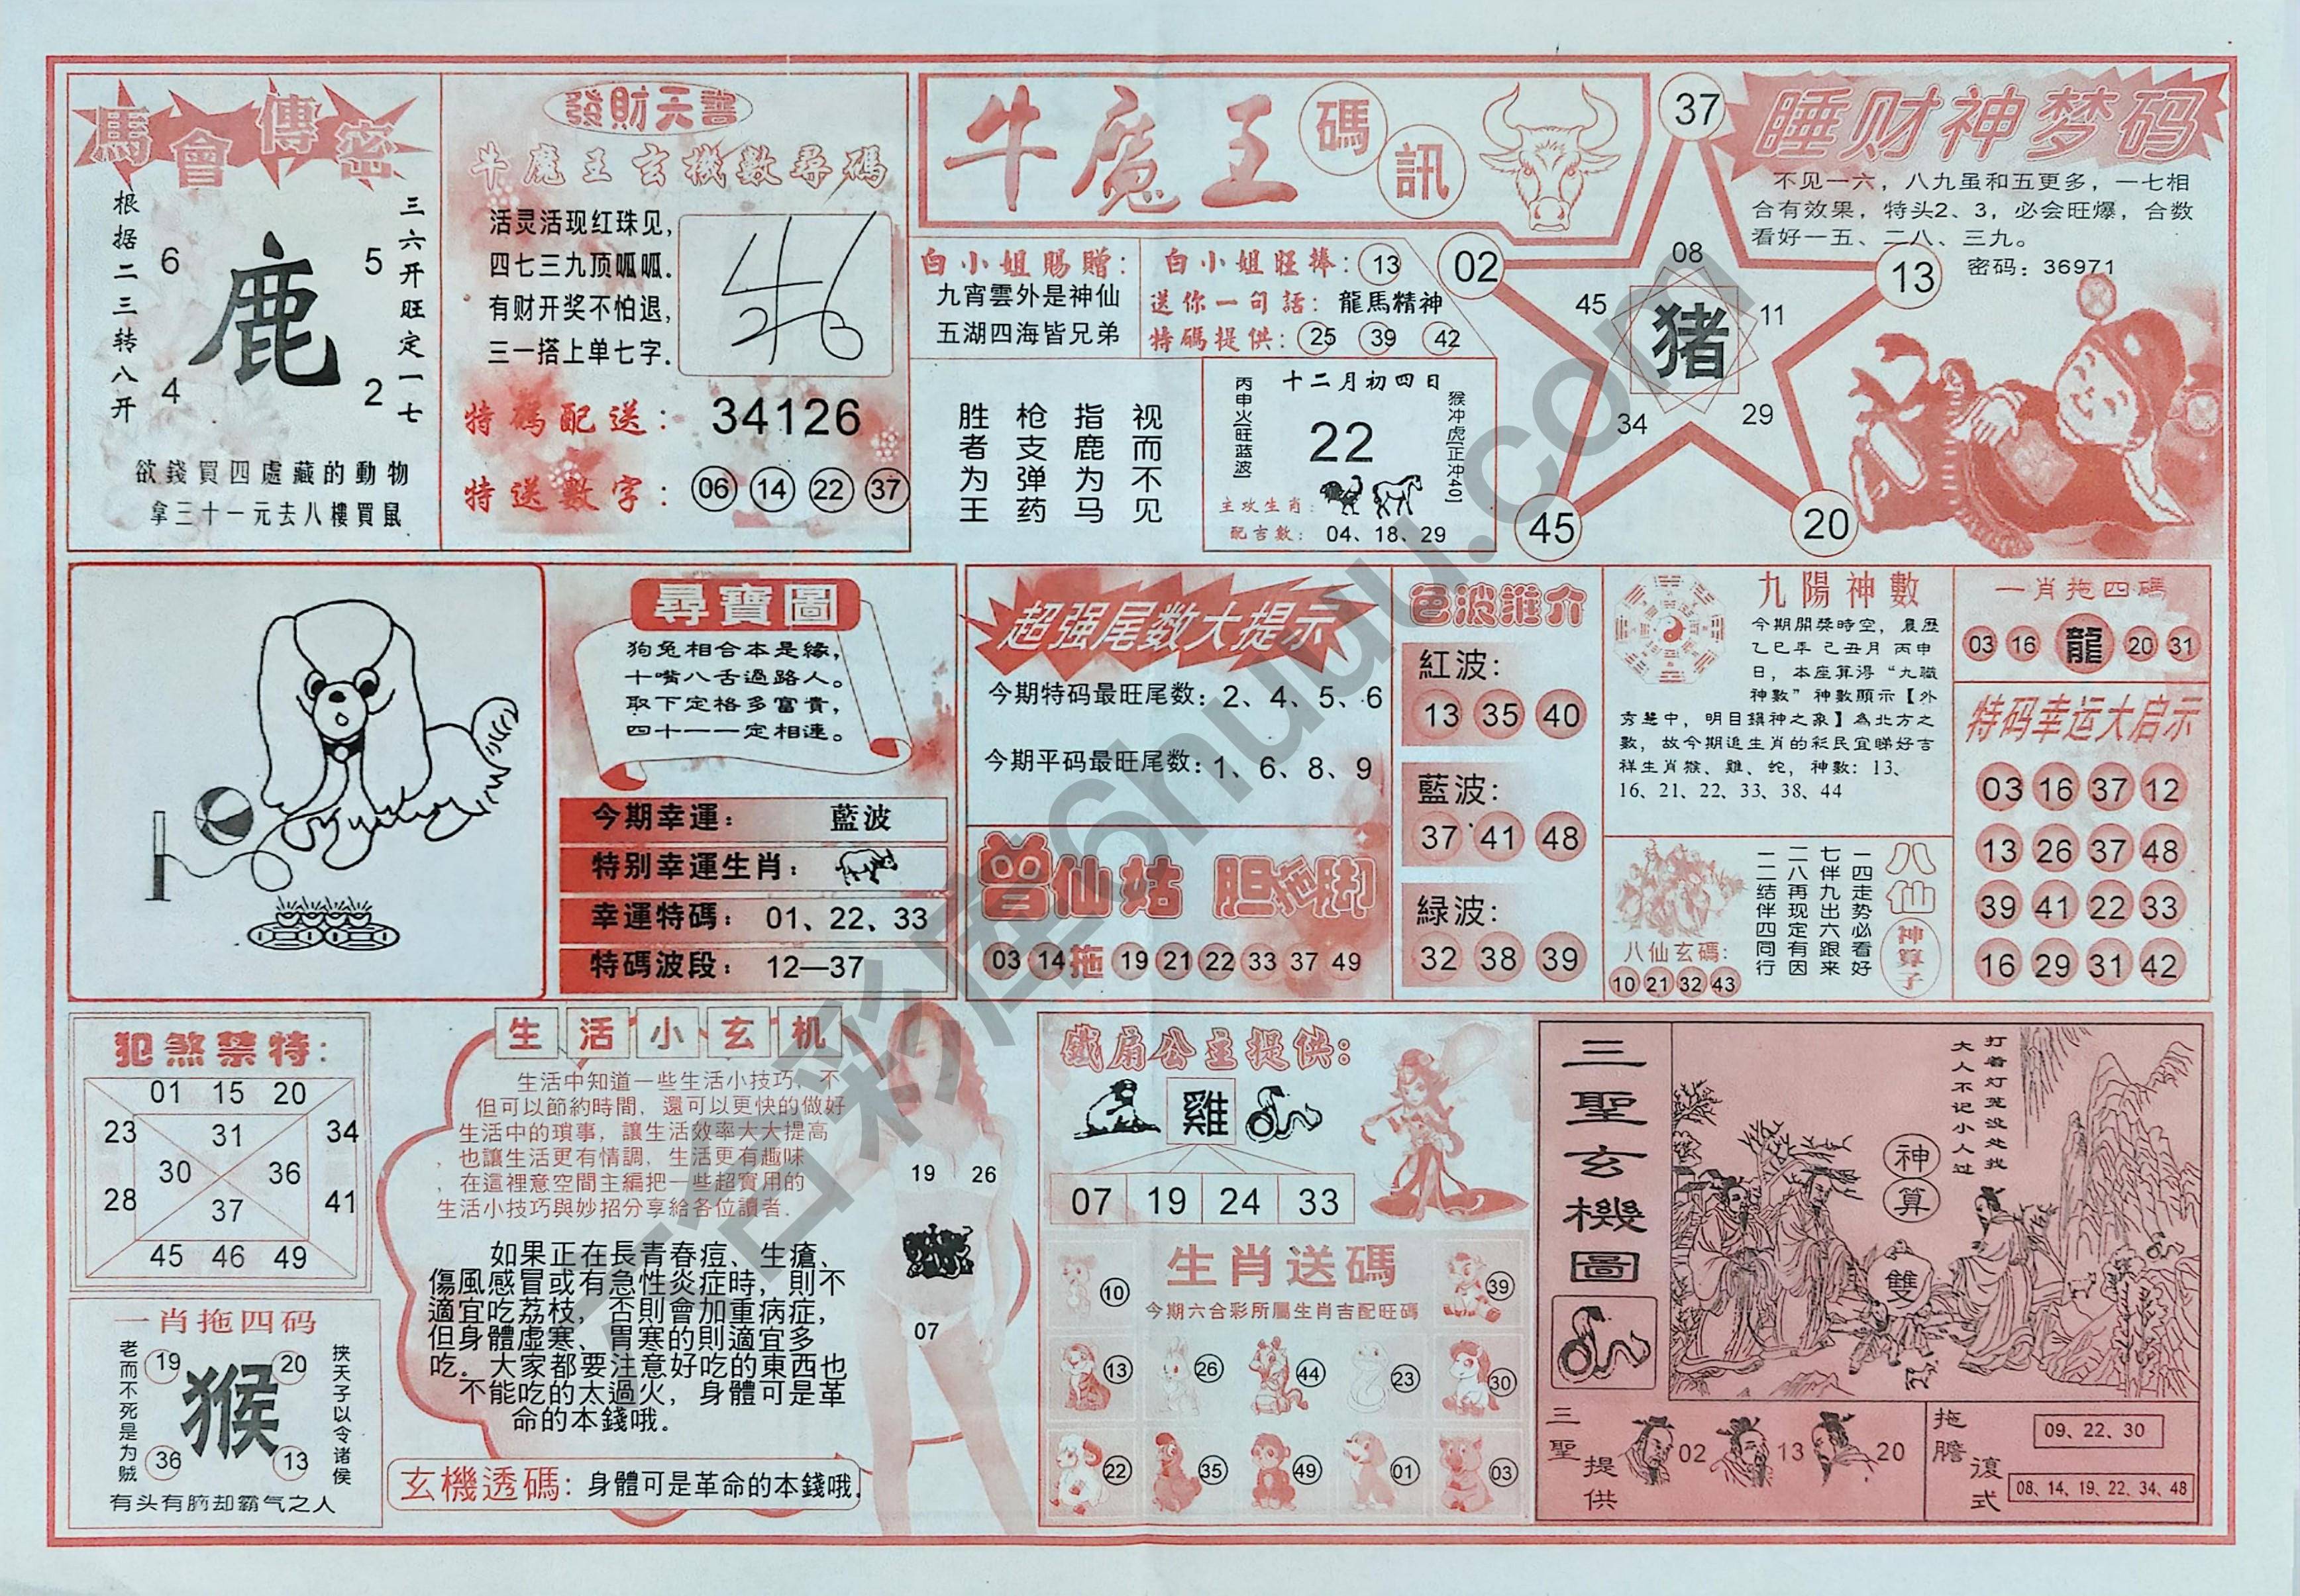 馬會傳密
根据二三转八开
三六开旺定一七
鹿
6
5
4
2
欲錢買四處藏的動物
拿三十一元去八樓買鼠
發財天書
牛魔王玄機數尋碼
活灵活现红珠见,
四七三九顶呱呱.
有财开奖不怕退,
三一搭上单七字.
特碼配送: 34126
特送數字: 06 14 22 37
牛魔王
碼訊
白小姐賜贈:
九宵雲外是神仙
五湖四海皆兄弟
白小姐旺捧: 13
送你一句話: 龍馬精神
特碼提供: 25 39 42
胜者为王
枪支弹药
指鹿为马
视而不见
十二月初四日
丙申火旺蓝波]
22
猴冲虎[正冲40]
主攻生肖:
配吉數: 04、18、29
37
02
13
08
45
11
猪
34
29
45
20
睡财神梦码
不见一六，八九虽和五更多，一七相
合有效果，特头2、3，必会旺爆，合数
看好一五、二八、三九。
密码：36971
尋寶圖
狗兔相合本是緣,
十嘴八舌過路人。
取下定格多富貴,
四十一一定相連。
今期幸運: 藍波
特别幸運生肖:
幸運特碼: 01、22、33
特碼波段: 12—37
超强尾数大提示
今期特码最旺尾数: 2、4、5、6
今期平码最旺尾数: 1、6、8、9
曾仙姑 胆拖脚
03 14 拖 19 21 22 33 37 49
色波推介
紅波:
13 35 40
藍波:
37 41 48
緑波:
32 38 39
九陽神數
今期開獎時空，農歷
乙巳年 己丑月 丙申
日，本座算得“九職
神數”神數顯示【外
秀慧中，明目鎮神之象】為北方之
數，故今期追生肖的彩民宜睇好吉
祥生肖猴、雞、蛇，神數: 13、
16、21、22、33、38、44
八仙玄碼:
10 21 32 43
八仙神算子
一四走势必看好
七伴九出六跟来
二八再现定有因
一二结伴四同行
一肖拖四碼
03 16 龍 20 31
特码幸运大启示
03 16 37 12
13 26 37 48
39 41 22 33
16 29 31 42
犯煞禁特:
01 15 20
23
31
34
30
36
28
37
41
45 46 49
一肖拖四码
老而不死是为贼
挟天子以令诸侯
19
20
猴
36
13
有头有脑却霸气之人
生活小玄机
生活中知道一些生活小技巧，不
但可以節約時間，還可以更快的做好
生活中的瑣事，讓生活效率大大提高
，也讓生活更有情調，生活更有趣味
，在這裡意空間主編把一些超實用的
生活小技巧與妙招分享給各位讀者.
如果正在長青春痘、生瘡、
傷風感冒或有急性炎症時，則不
適宜吃荔枝，否則會加重病症，
但身體虛寒、胃寒的則適宜多
吃. 大家都要注意好吃的東西也
不能吃的太過火，身體可是革
命的本錢哦.
玄機透碼: 身體可是革命的本錢哦.
19 26
07
鐵扇公主提供:
雞
07 19 24 33
生肖送碼
今期六合彩所屬生肖吉配旺碼
10
39
13
26
44
23
30
22
35
49
01
03
三聖玄機圖
打着灯笼没处找
大人不记小人过
神算
雙
三聖提供
02
13
20
拖膽
09、22、30
復式
08、14、19、22、34、48
六合彩库6huuu.com